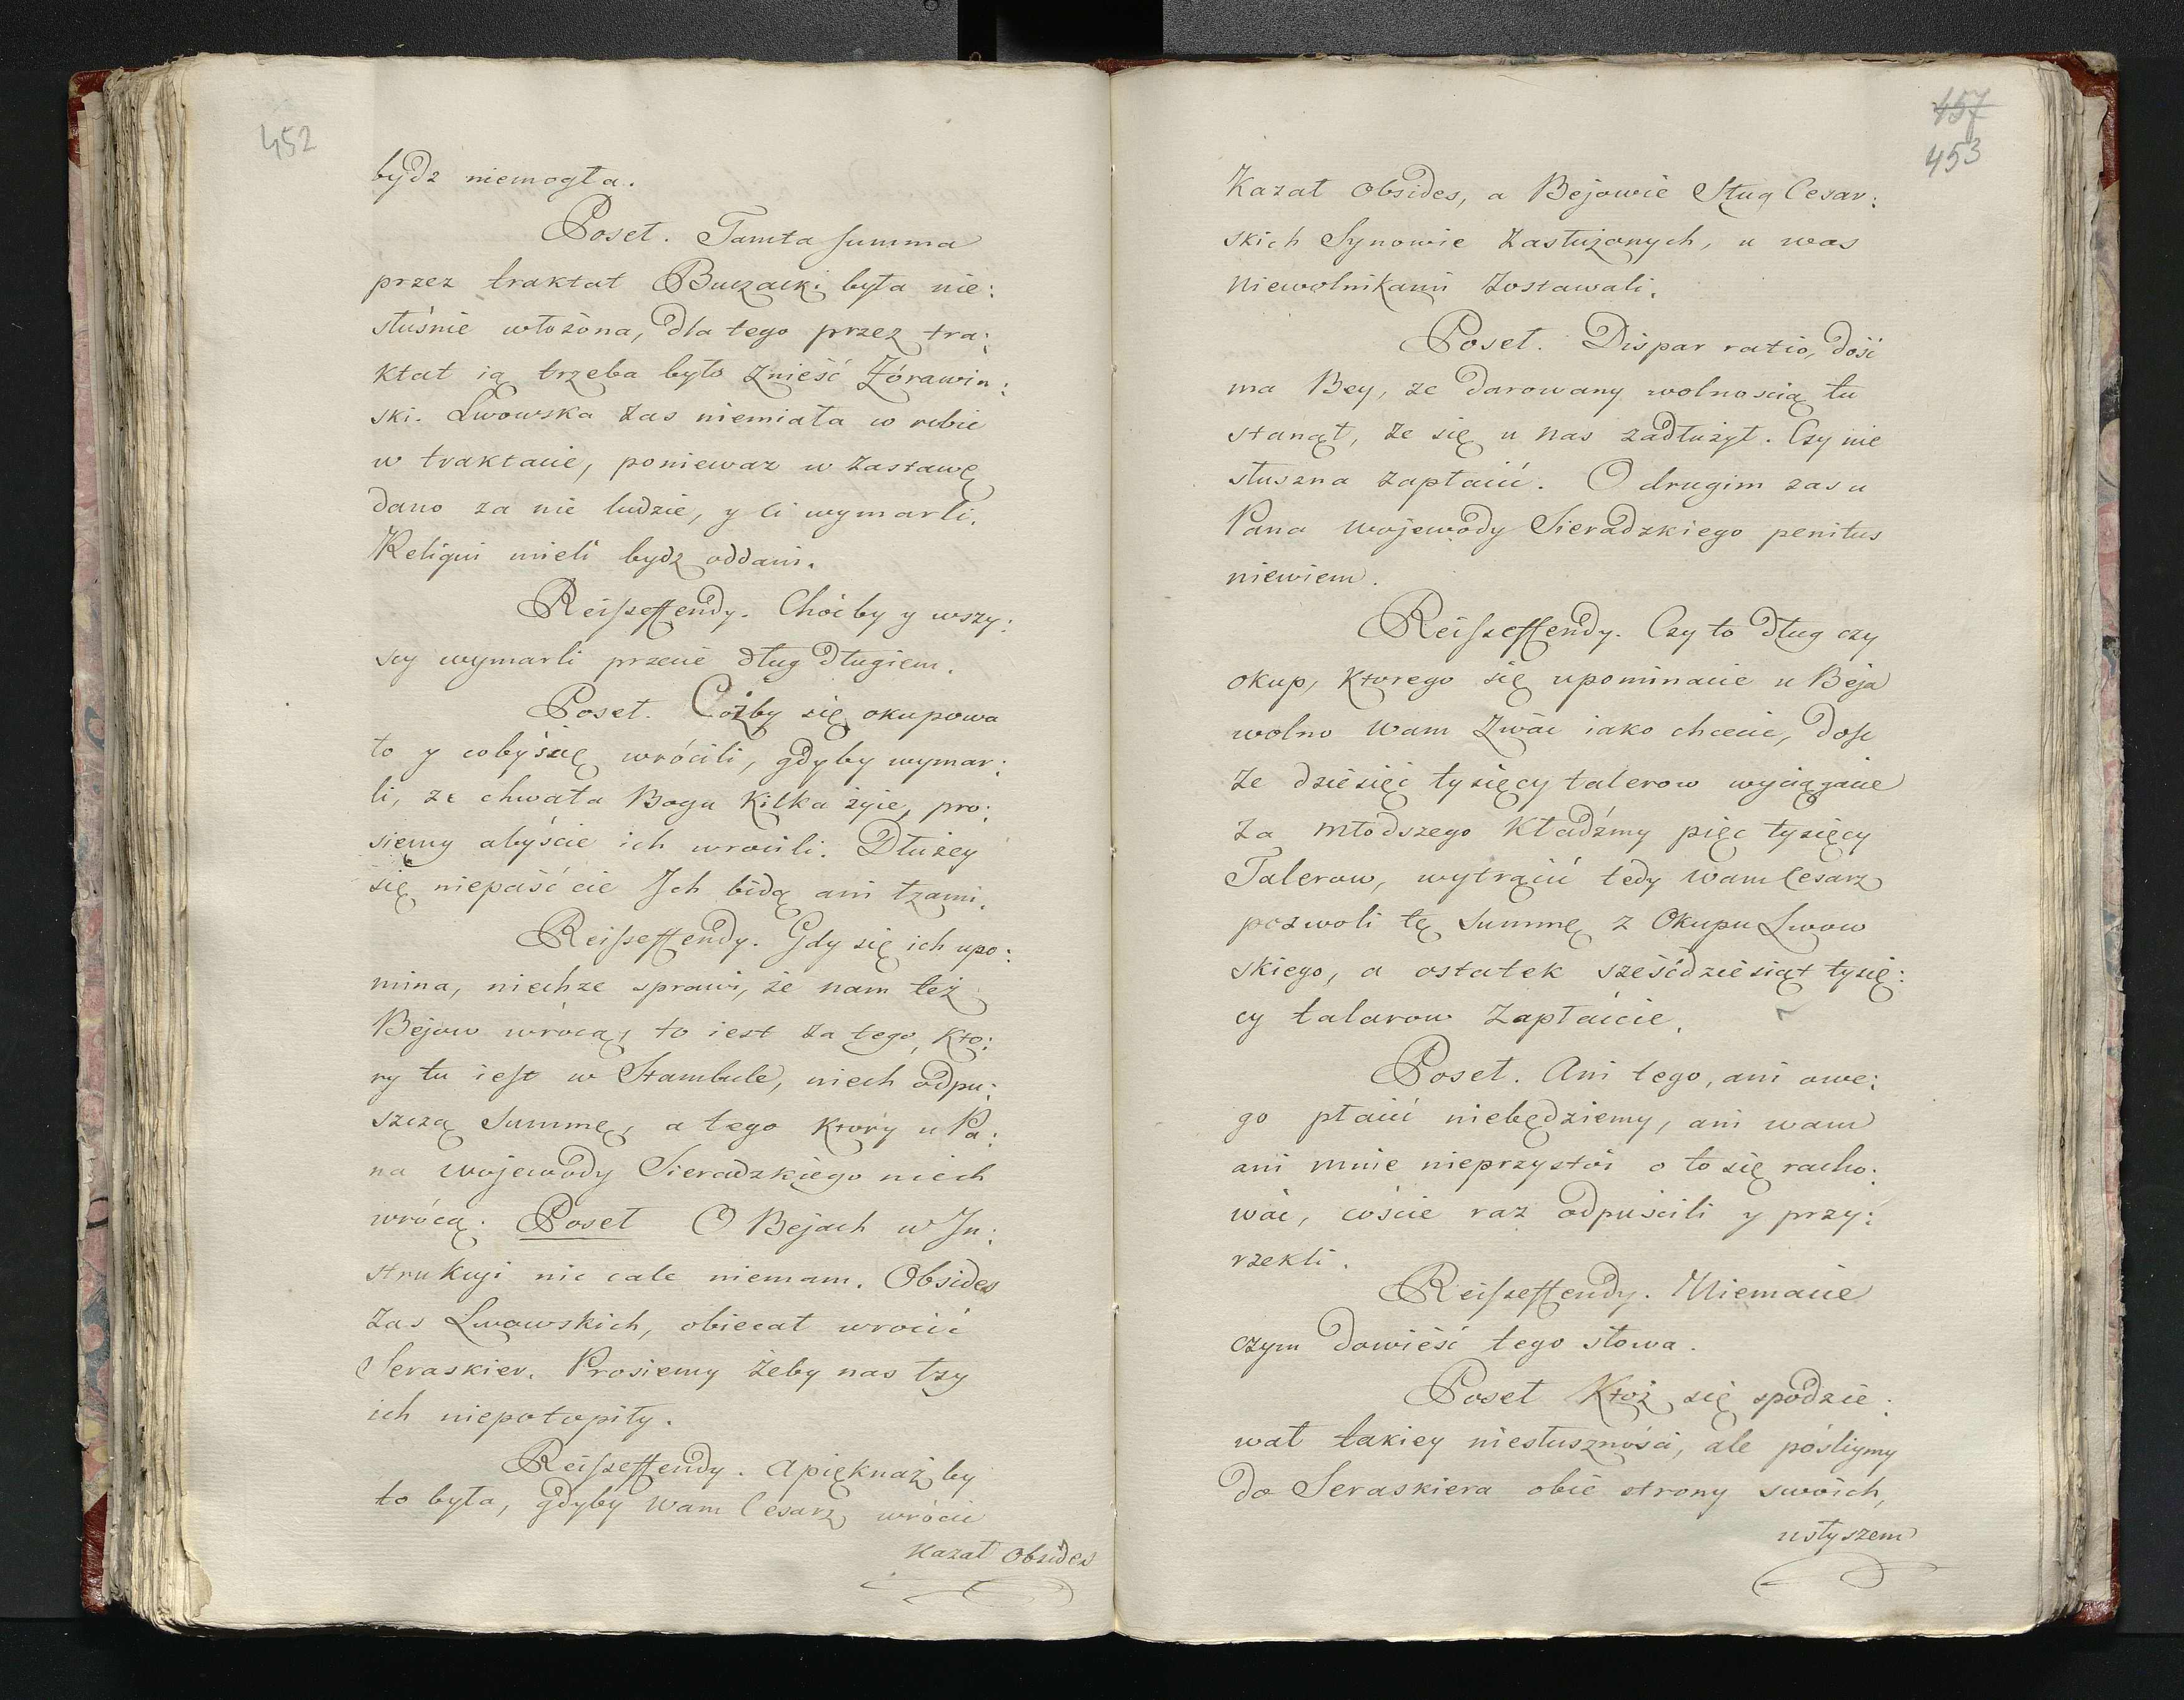 452
bydz niemogła.
Poseł. Tamta summa
przez traktat Buczacki była nie:
słuśnie włożona, dla tego przez tra:
ktat ią trzeba było znieść Żórawin:
ski. Lwowska zas niemiała co robić
w traktacie, poniewaz w zastawę
dano za nie ludzie, y ci wymarli.
Reliqui mieli bydz oddani.
Reisseffendy. Choćby y wszy:
scy wymarli przecie dług długiem.
Poseł. Cożby się okupowa
ło y cobyśię wrócili, gdyby wymar:
li, ze chwała Bogu kilka żyie, pro:
siemy abyście ich wrocili. Dłużey
się niepaśćcie Ich bidą ani łzami.
Reisseffendy. Gdy się ich upo:
mina, niechze sprawi, że nam też
Bejow wrócą, to iest za tego, kto:
ry tu iest w Stambule, niech odpu:
szczą summę, a tego który u Pa:
na wojewody Sieradzkiego niech
wrócą. Poseł O Bejach w In:
strukcyi nic cale niemam. Obsides
zas Lwowskich, obiecał wrocić
Seraskier. Prosiemy żeby nas łzy
ich niepotopiły.
Reisseffendy. A pięknaż by
to była, gdyby wam Cesarz wrócić
kazał obsides
457
453
Kazał obsides, a Bejowie Sług Cesar:
skich Synowie zasłużonych, u was
niewolnikami zostawali.
Poseł. Dispar ratio, dość
ma Bey, ze darowany wolnoscią tu
stanął, że się u nas zadłużył. Czy nie
słuszna zapłacić. O drugim zas u
Pana wojewody Sieradzkiego penitus
niewiem.
Reisseffendy. Czy to dług czy
okup, ktorego się upominacie u Beja
wolno wam zwać iako chcecie, dosc
że dziesięć tysięcy talerow wyciągacie
za młodszego kładźmy pięc tysięcy
Talerow, wytrącić tedy wam Cesarz
pozwoli tę summę z Okupu Lwow
skiego, a ostatek sześćdziesiąt tysię:
cy talarow zapłaicie.
Poseł. Ani tego, ani owe:
go płacić niebędziemy, ani wam
ani mnie nieprzystoi o to się racho:
wać, coście raz odpuścili y przy:
rzekli.
Reisseffendy. Niemacie
czym dowieść tego słowa.
Poseł Ktoż się spodzie:
wał takiey niesłuszności, ale pośliymy
do Seraskiera obie strony swoich,
usłyszem